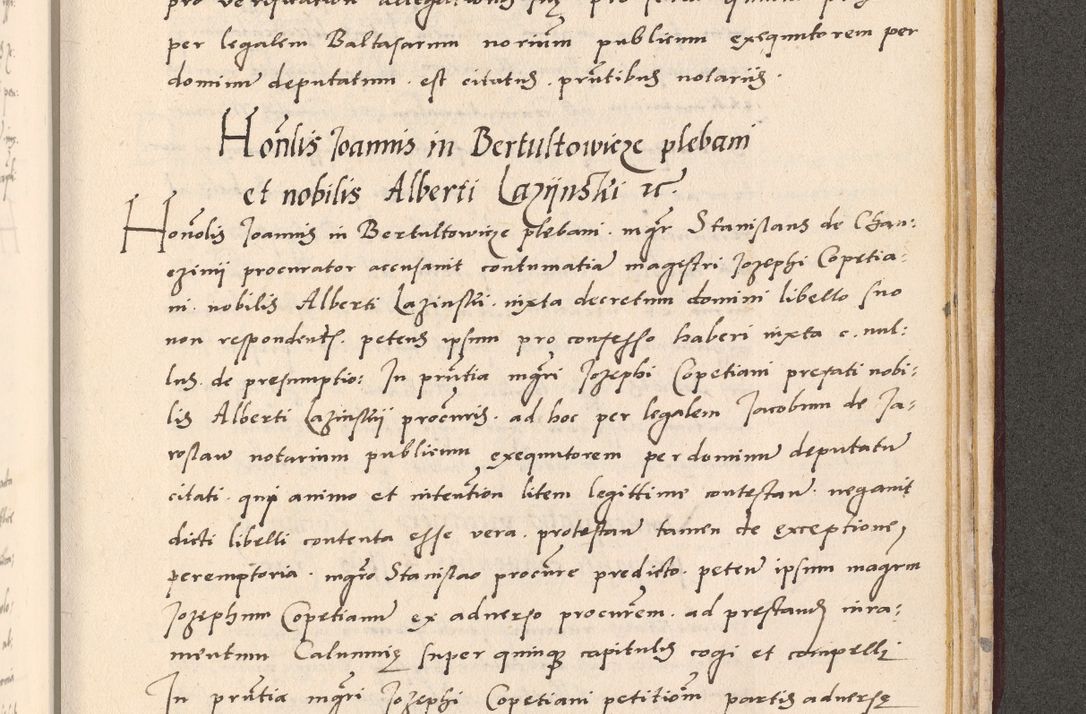 per legalem Baltasarum norium publicum exequutorem per
dominū deputatum. est citatus. prñtibus notariis.
Honlis Joannis in Bertultowicze plebani
et nobilis Alberti Lazijnskı etc.
Honolis Joannis in Bertultowicze plebani. mgr Stanislaus de Chan:
czinij procurator accusauit contumatiā magistri Jozephi Copetia:
ni. nobilis Alberti Lazinskı. iuxta decretum domini libello suo
non respondents. petens ipsum pro confesso haberi iuxta c. nul:
lus. de presumptio: In prñtia mgri Jozephi Copetiani prefati nobi:
lis Alberti Lazinskij procuris. ad hoc per legalem Jacobum de Ja:
roslaw notarium publicum exequutorem per dominū deputatū
citati. qui animo et intention litem legittime contestan. negauit
dicti libelli contenta esse vera. protestan tamen de exceptione
peremptoria. mgro Stanislao procure predicto. peten ipsum magrm
Jozephum Copetianū ex aduerso procurem. ad prestand iura:
mentum Calumnię super quinque capitulis cogi et compelli
In prñtia mgri Jozephi Copetiani petitiom partis aduersę